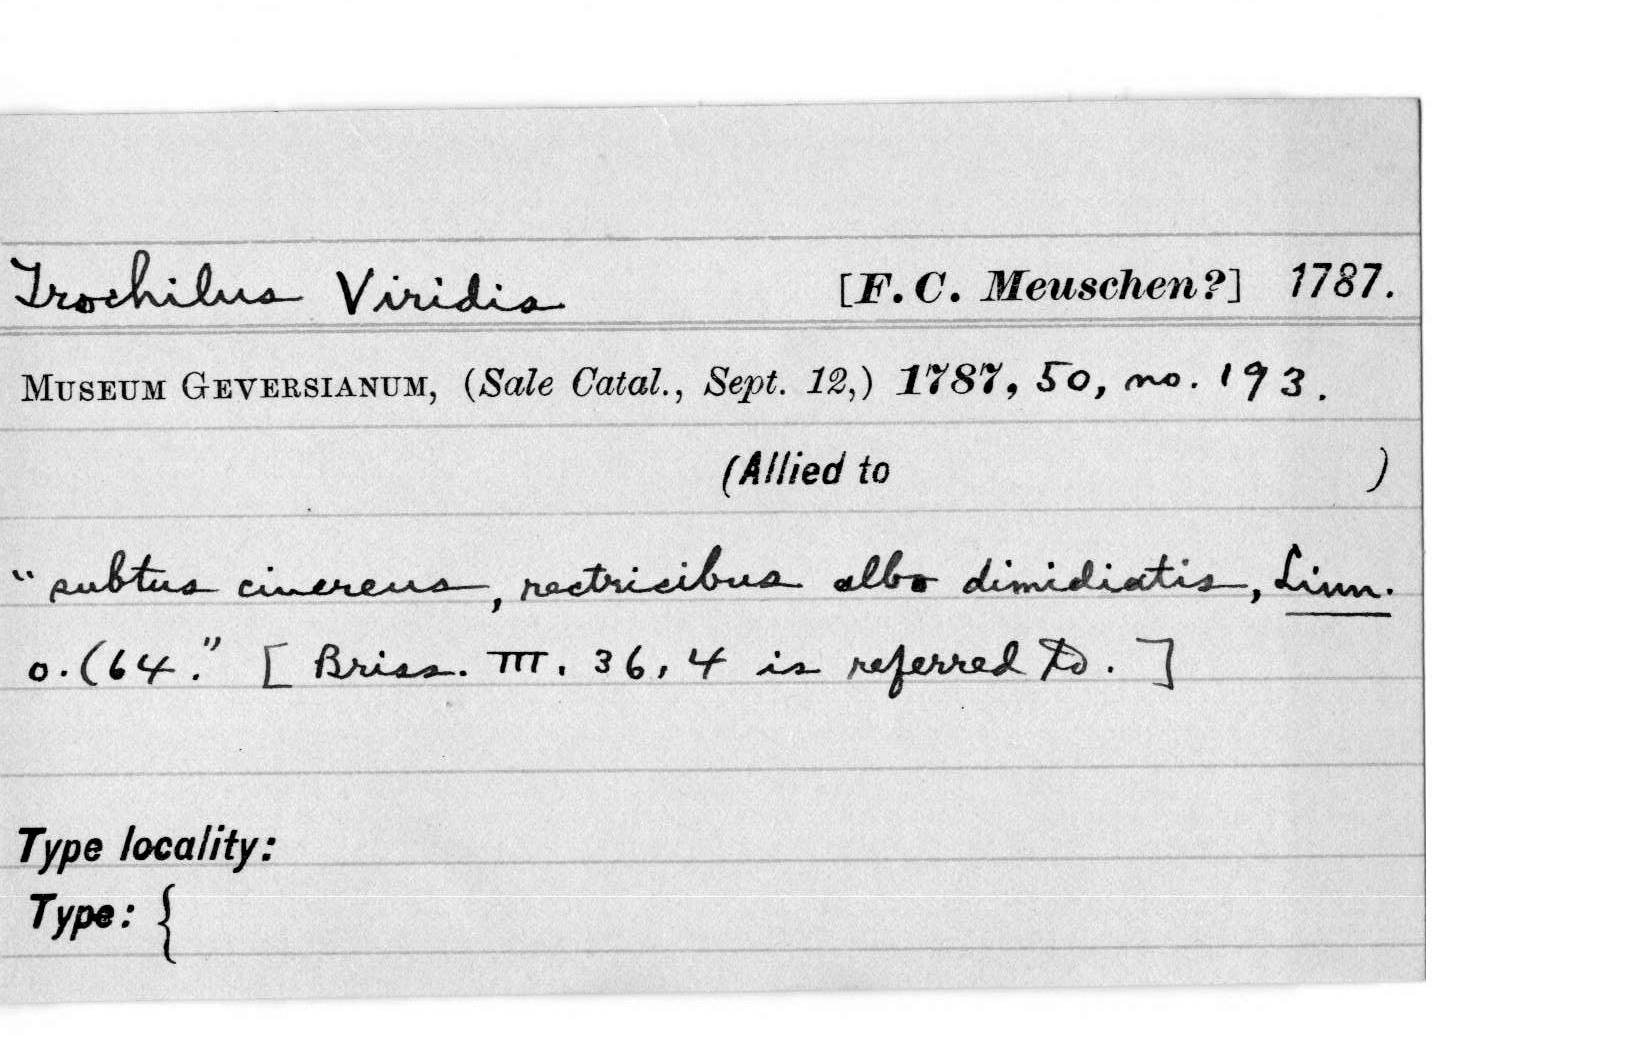 Trochilus Viridis [F. C. Meuschen?] 1787.
MUSEUM GEVERSIANUM, (Sale Catal., Sept. 12,) 1787, 50, no. 193.
(Allied to )
“subtus cinereus, rectricibus albo dimidiatis, Linn.
o. (64.” [Briss. III. 36, 4 is referred to.]
Type locality:
Type: {